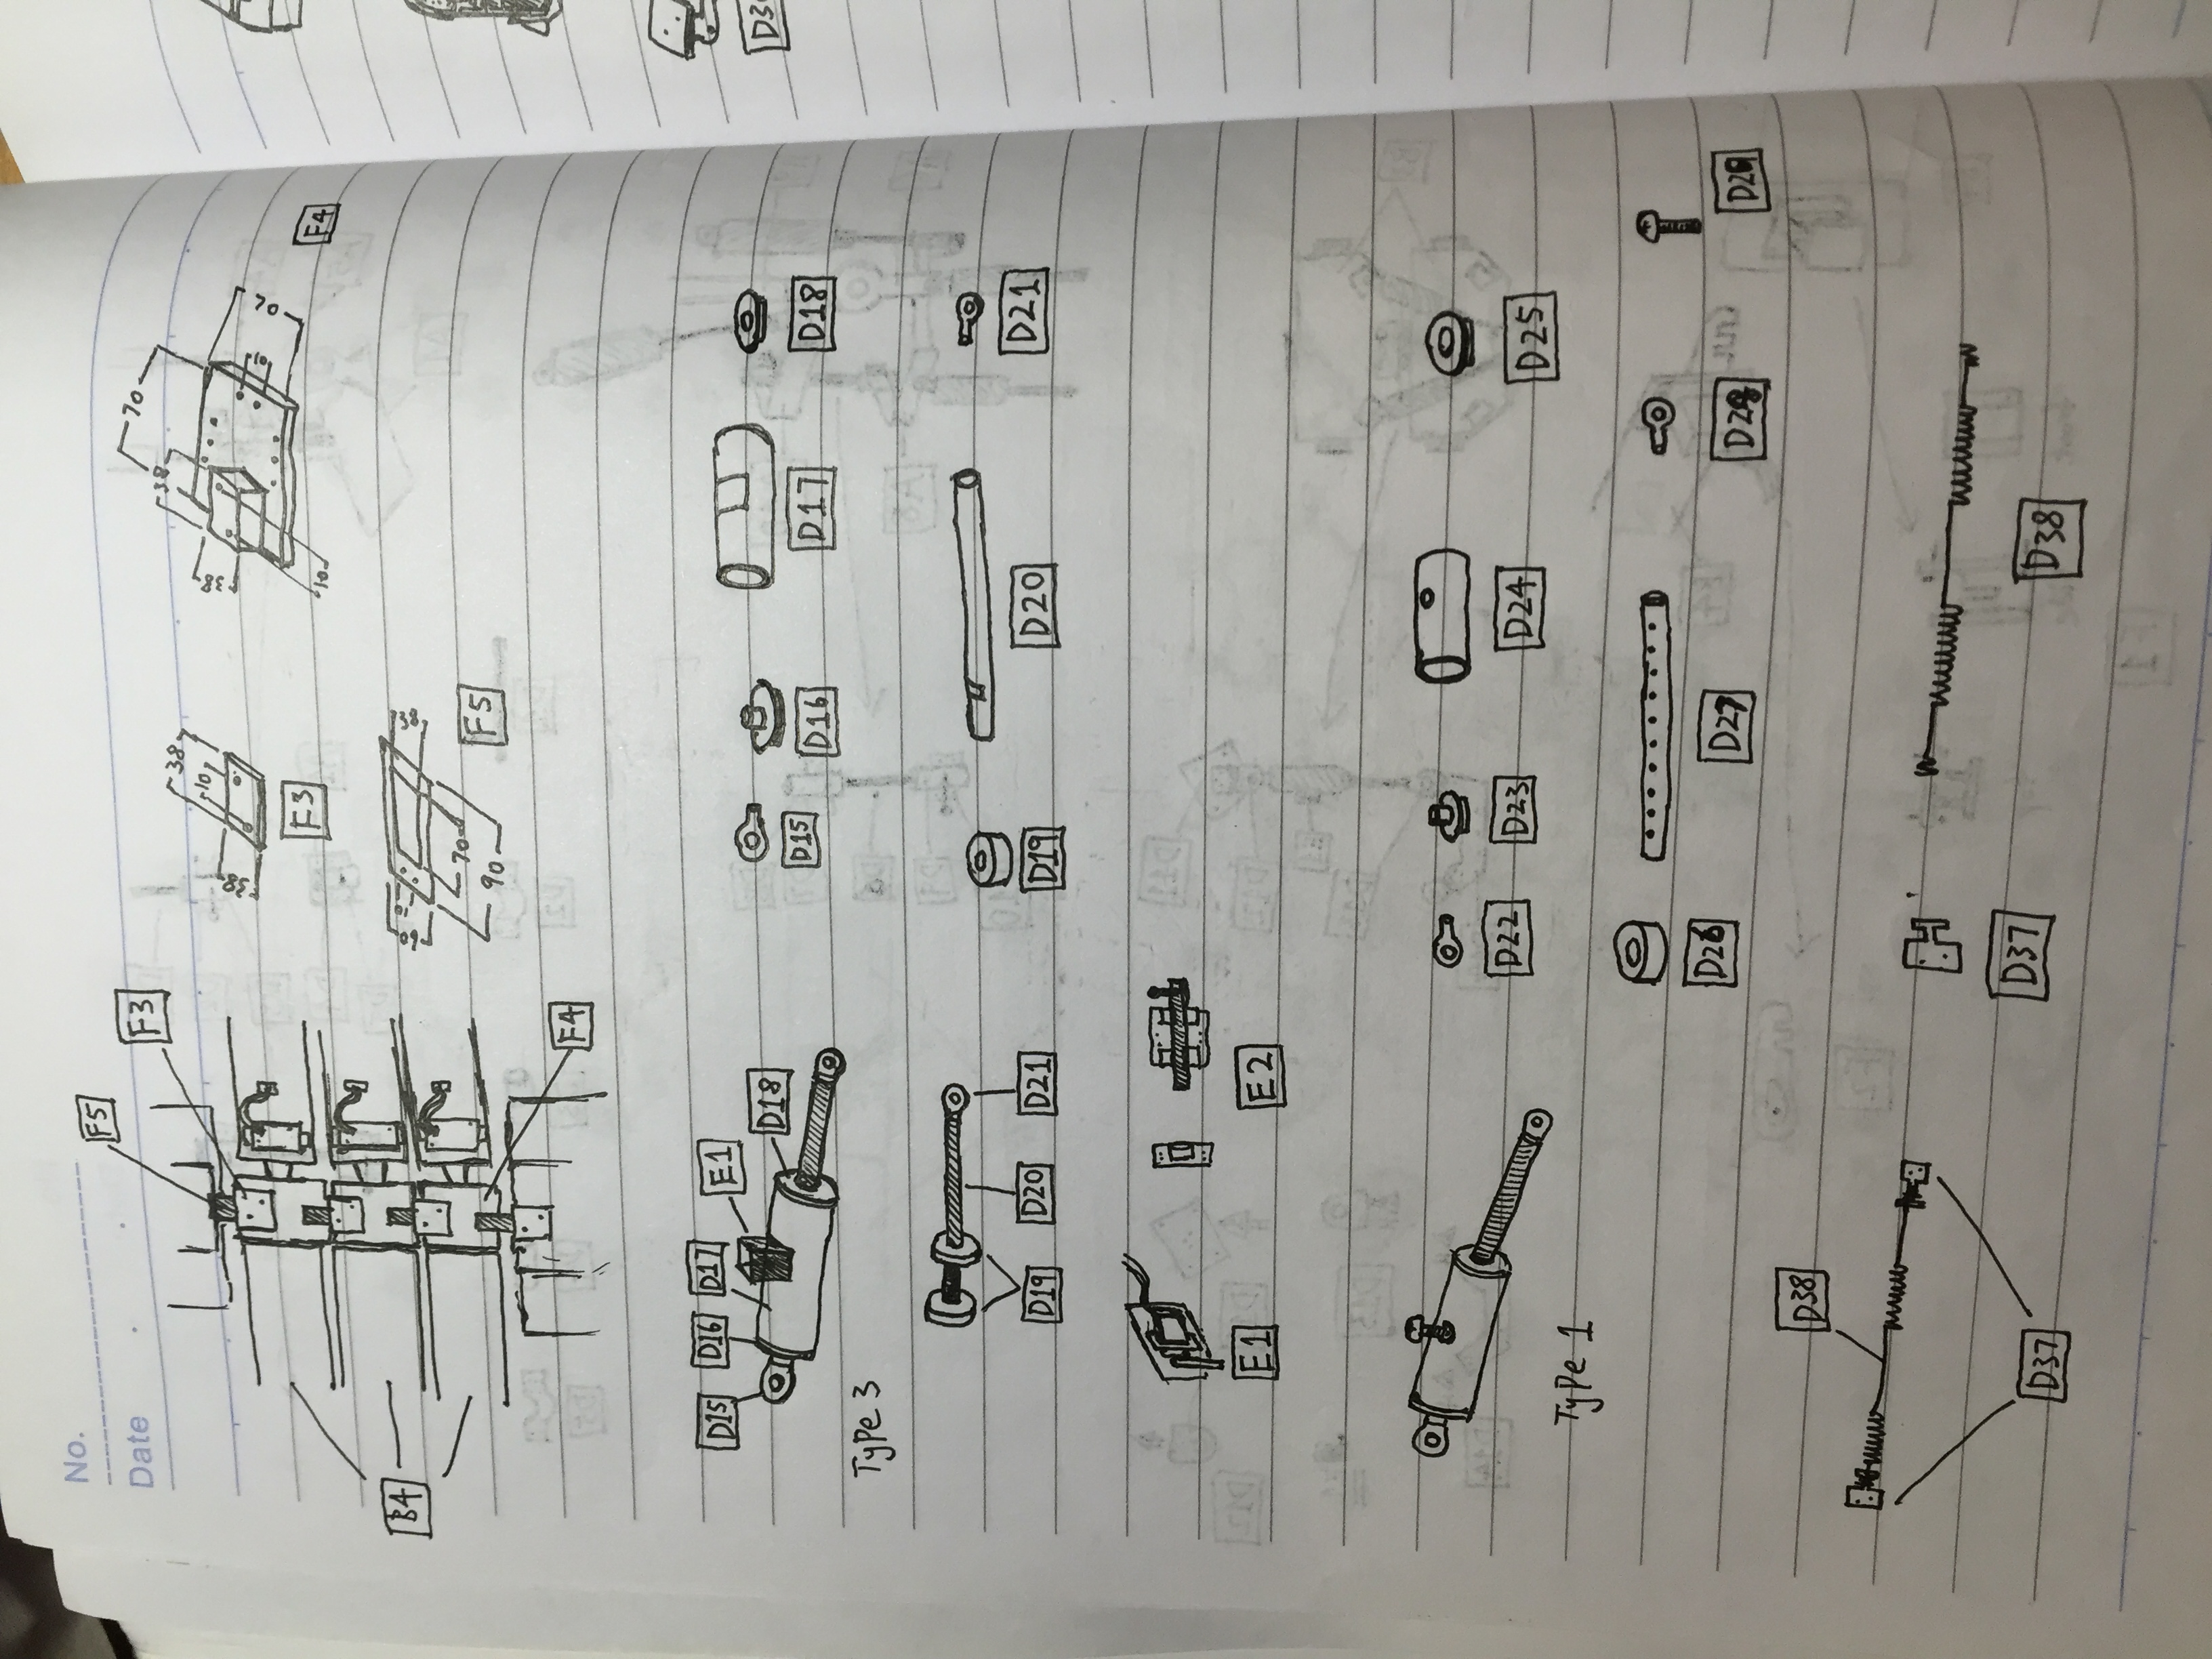 No.
Date
F5
F3
38
10
38
F3
70
38
38
10
10
70
F4
B4
70
90
F5
F4
D15
D16
D17
E1
D18
Type 3
D15
D16
D17
D18
D19
D20
D21
D19
D20
D21
E1
E2
Type 1
D22
D23
D24
D25
D26
D27
D28
D29
D38
D37
D37
D38